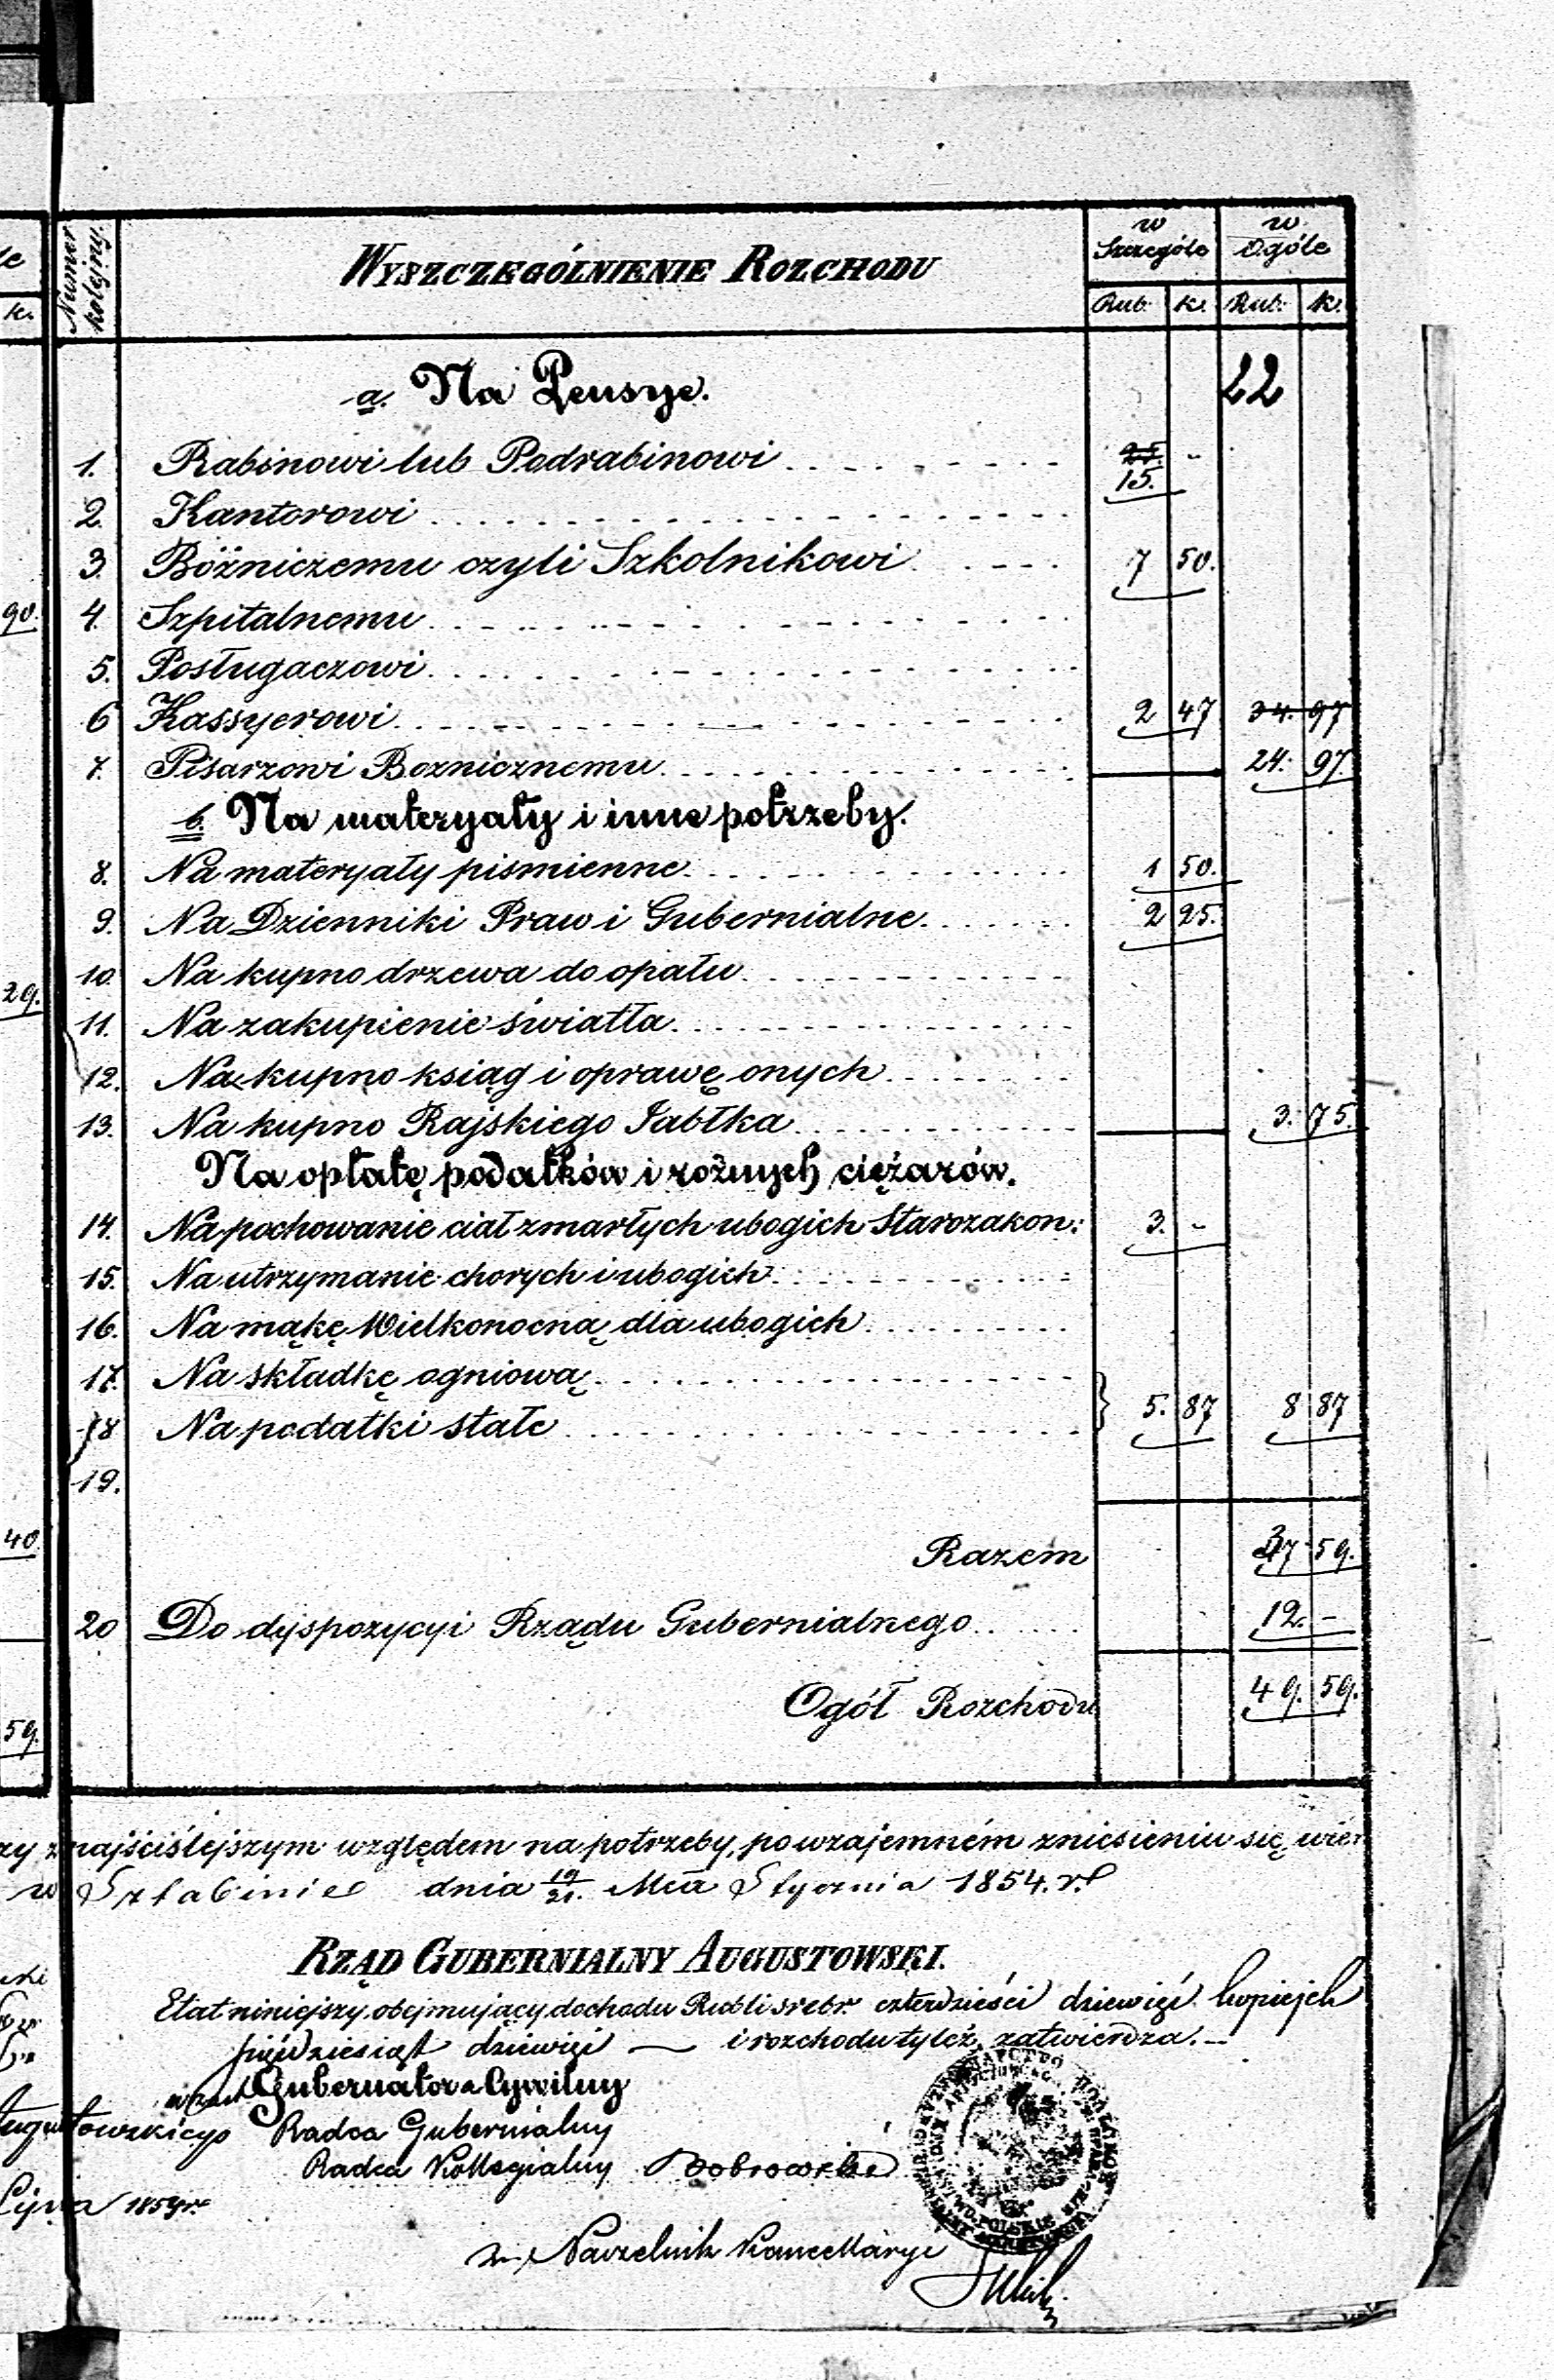 le
k.
Numer kolejny.
WYSZCZEGÓLNIENIE ROZCHODU
w Szczególe
w Ogóle
Rub. k. Rub. k.
22
a. Na Pensye.
1. Rabinowi lub Podrabinowi 25. -
15.
2. Kantorowi
3. Bóżniczemu czyli Szkolnikowi 7 50.
90. 4. Szpitalnemu
5. Posługaczowi
6 Kassyerowi 2 47 34. 97
7. Pisarzowi Boznicznemu 24. 97.
b. Na materyały i inne potrzeby.
8. Na materyały pismienne 1 50.
9. Na Dzienniki Praw i Gubernialne 2 25.
10. Na kupno drzewa do opału
29.
11. Na zakupienie światła
12. Na kupno ksiąg i oprawę onych
13. Na kupno Rajskiego Jabłka 3. 75.
Na opłatę podatków i rożnych ciężarów.
14. Na pochowanie ciał zmarłych ubogich Starozakon: 3. -
15. Na utrzymanie chorych i ubogich
16. Na mąkę Wielkonocną dla ubogich
17. Na składkę ogniową
18 Na podatki stałe } 5. 87 8 87
19.
40
Razem 37 59.
20 Do dyspozycyi Rządu Gubernialnego 12. -
Ogół Rozchodu 49. 59.
59.
zy znajściślejszym względem na potrzeby, po wzajemném zniesieniu się wier
w Sztabinie dnia 19/21. Mca Stycznia 1854. r.
RZĄD GUBERNIALNY AUGUSTOWSKI.
Etat niniejszy obejmujący dochodu Rubli srebr. czterdzieści dziewięć kopiejek
pięćdziesiąt dziewięć — i rozchodu tyleż zatwierdza. —
Gubernator a Cywilny
Augustowskiego Radca Gubernialny
Radca Kollegialny Dobrowolski
Lipca 1854 r.
Naczelnik Kancellaryi